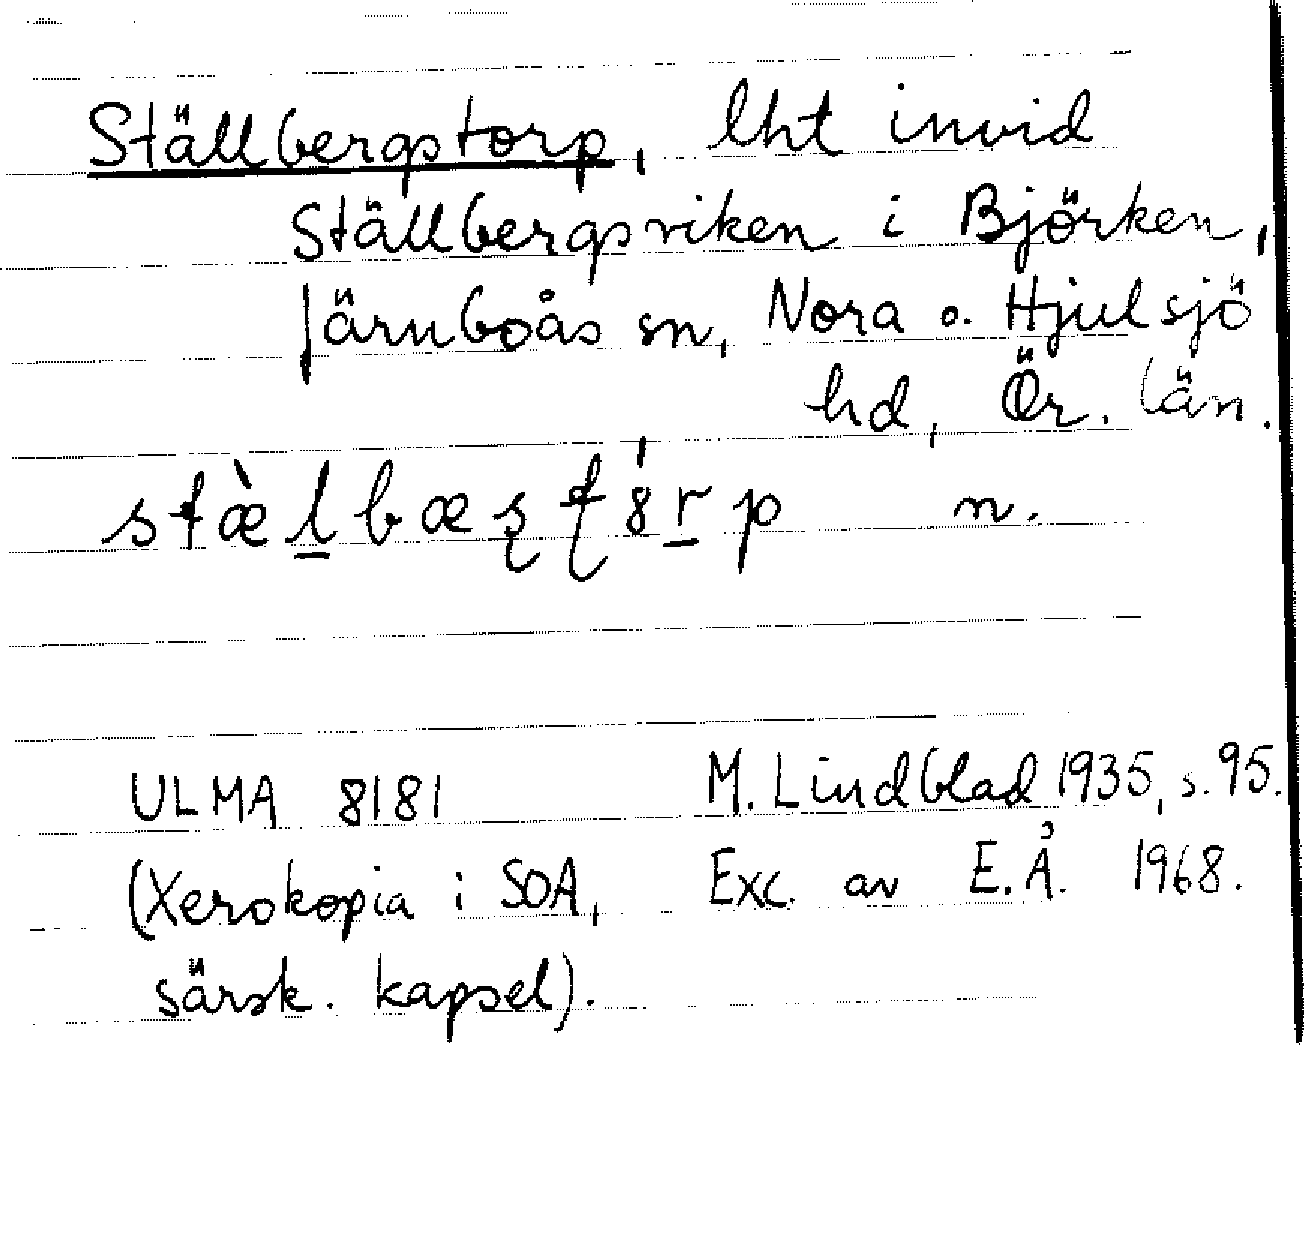 Ställbergstorp, lht invid
Ställbergsviken i Björken,
Järnboås sn, Nora o. Hjulsjö
hd, Ör. län.
stæ̀l̲bæʂʈ8́r̲p n.
ULMA 8181 M. Lindblad 1935, s. 95.
(Xerokopia i SOA, Exc. av E.Å. 1968.
särsk. kapsel).